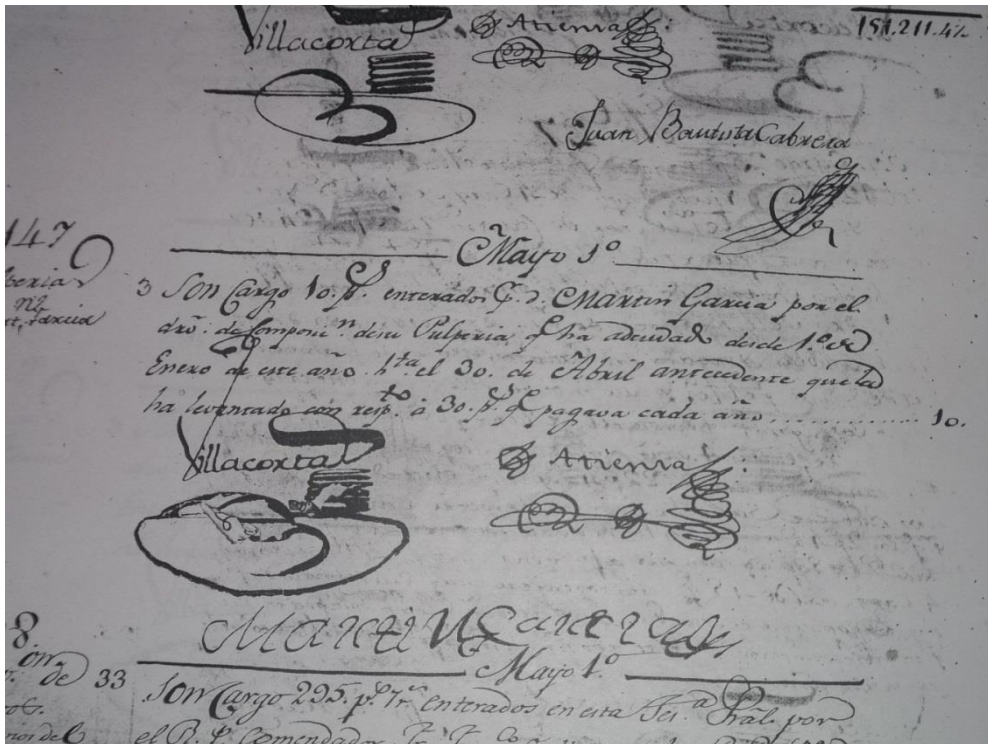 Villacorta
Atienza
151.211.4½
Juan Bautista Cabrera
147
Mayo 1º
3 Son Cargo 10. ps. enterados pr. D. Martin Garcia por el
dro. de Composicn. de su Pulperia q ha adeudado desde 1º de
Enero de este año hta. el 30. de Abril antecedente que la
ha levantado con respto. à 30. ps. q pagava cada año.............. 10.
Villacorta
Atienza
Martin Garcia
8
Mayo 1º
on de 33 Son Cargo 295. ps. 7 rs. enterados en esta Tesa. Pral. por
el R. P. Comendador